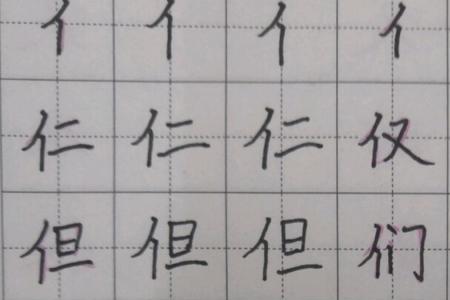 亻亻亻亻
仁仁仁仅
但但但们